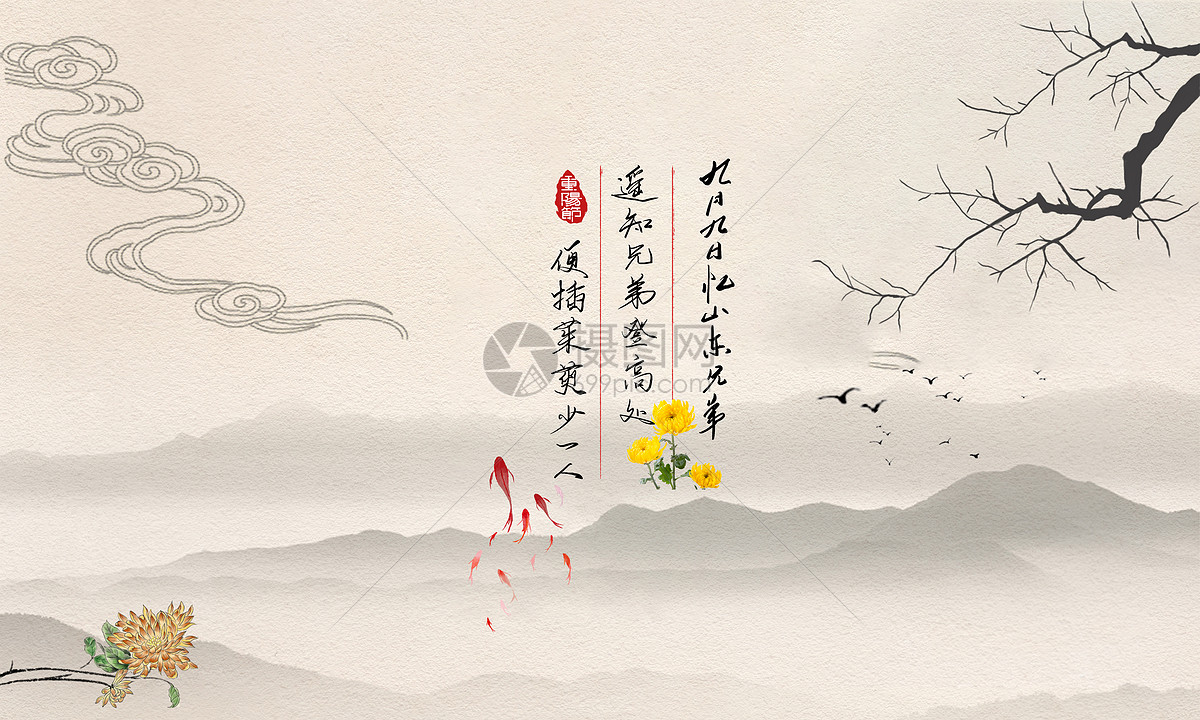 九月九日忆山东兄弟
遥知兄弟登高处
重陽節
便插茱萸少一人
摄图网
699pic.com